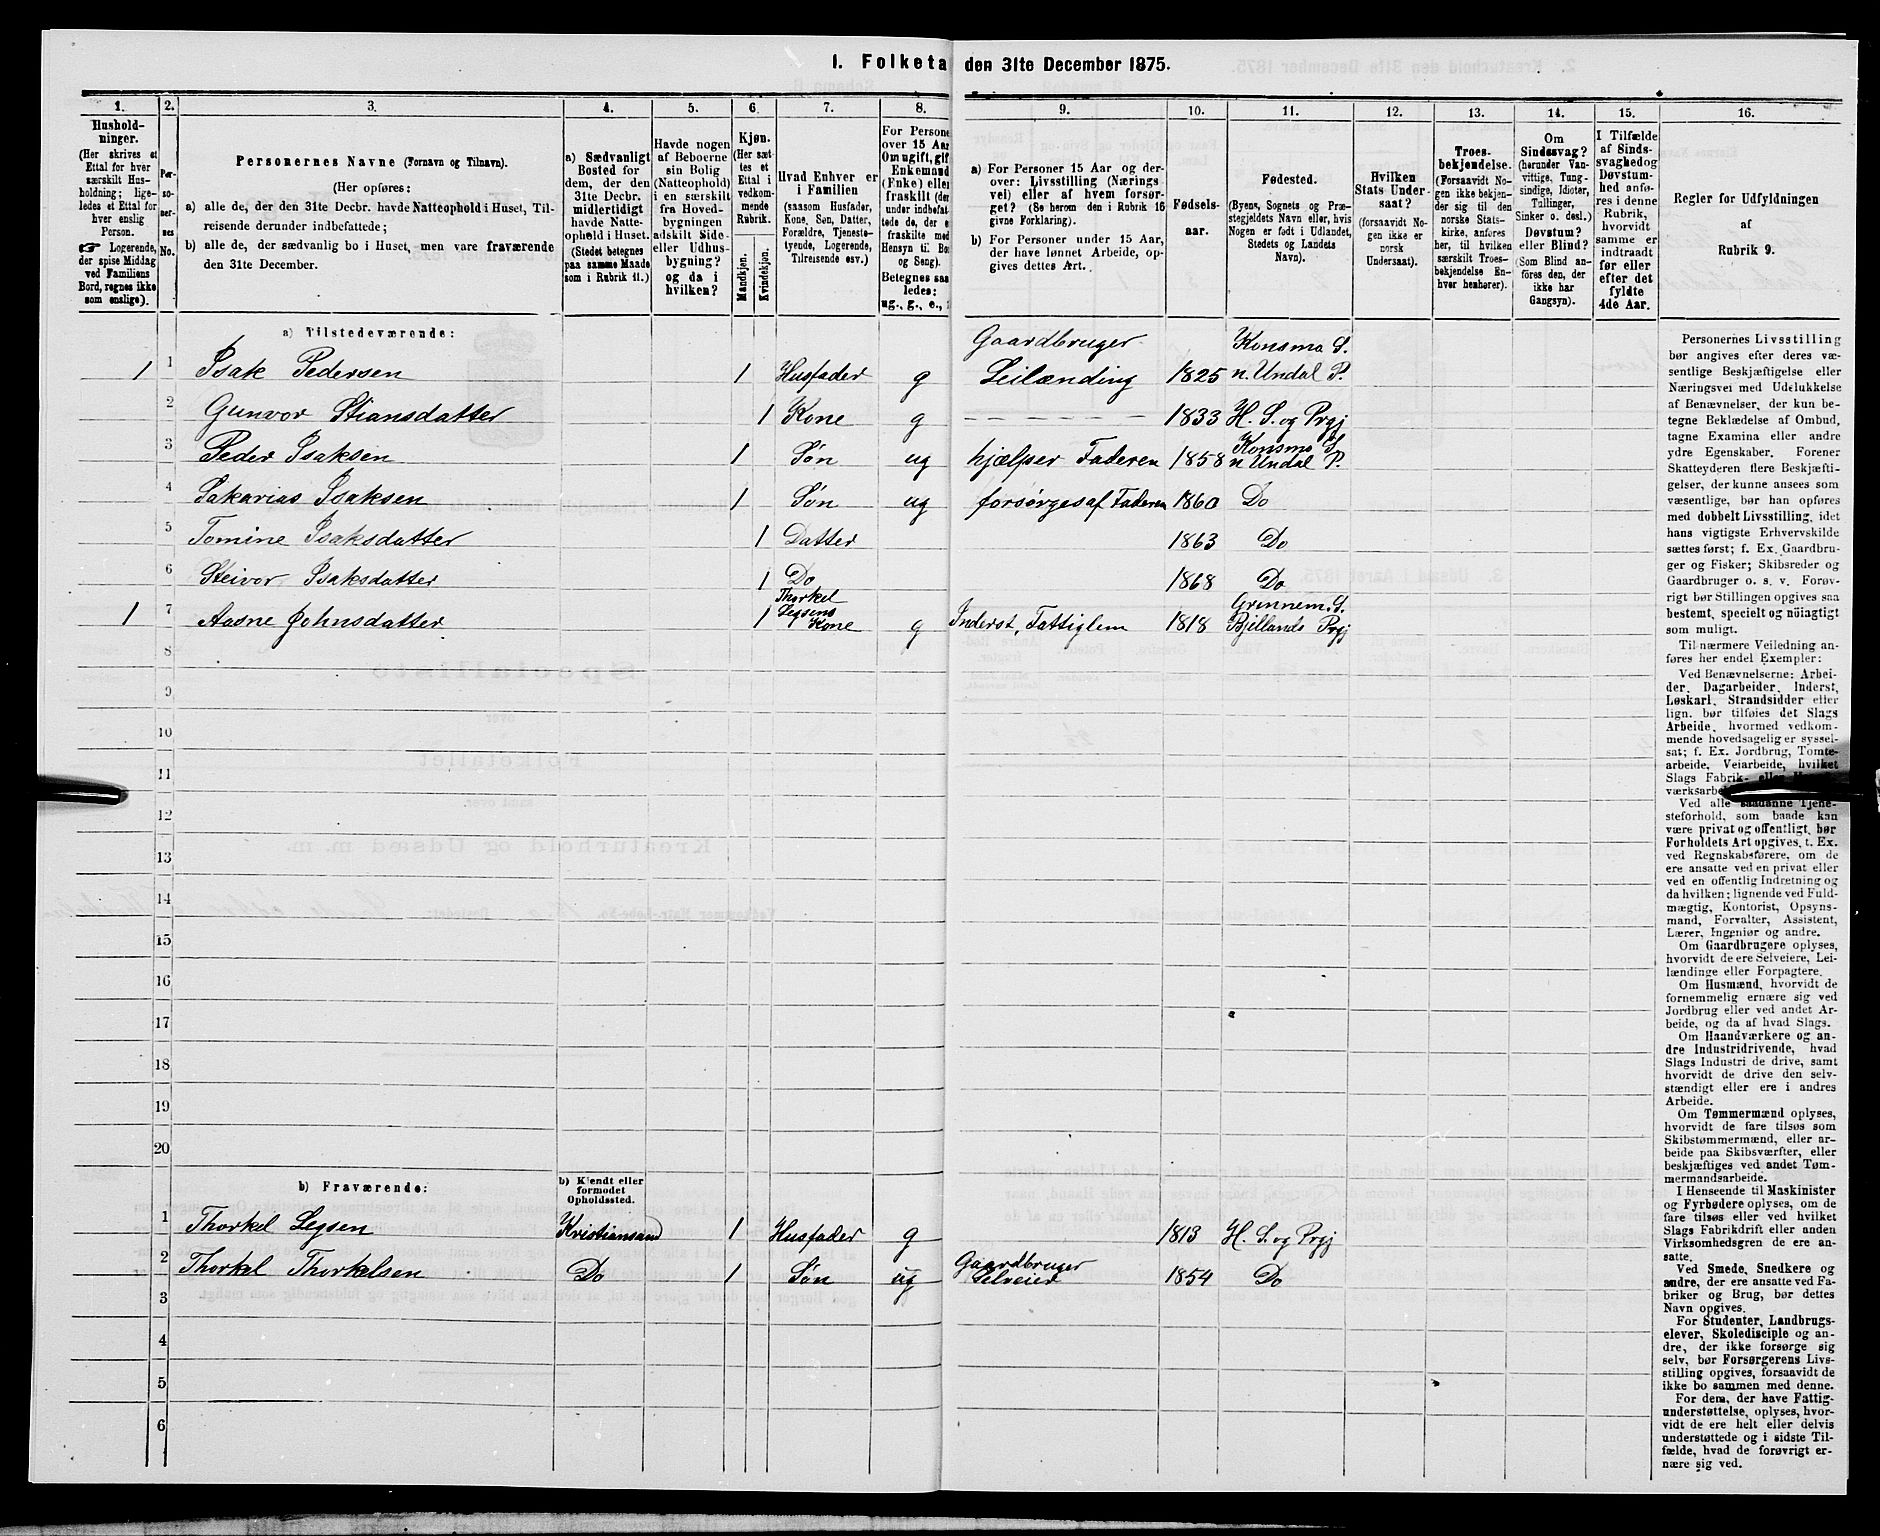 1. Folketa den 31te December 1875.
1. 2. 3. 4. 5. 6. 7. 8. 9. 10. 11. 12. 13. 14. 15. 16.
Hushold-
ninger.
(Her skrives et
Ettal for hver
særskilt Hus-
holdning; lige-
ledes et Ettal for
hver enslig
Person.
☞ Logerende,
der spise Middag
ved Familiens
Bord, regnes ikke
som enslige).
Per-
so-
ner-
nes
No.
Personernes Navne (Fornavn og Tilnavn).
(Her opføres:
a) alle de, der den 31te Decbr. havde Natteophold i Huset, Til-
reisende derunder indbefattede;
b) alle de, der sædvanlig bo i Huset, men vare fraværende
den 31te December.
a) Sædvanligt
Bosted for
dem, der den
31te Decbr.
midlertidigt
havde Natte-
ophold i Huset.
(Stedet betegnes
paa samme Maade
som i Rubrik 11.)
Havde nogen
af Beboerne
sin Bolig
(Natteophold)
i en særskilt
fra Hoved-
bygningen
adskilt Side-
eller Udhus-
bygning?
og da i
hvilken?
Kjøn.
(Her sæt-
tes et
Ettal i
vedkom-
mende
Rubrik.
Mandkjøn.
Kvindekjøn.
Hvad Enhver er
i Familien
(saasom Husfader,
Kone, Søn, Datter,
Forældre, Tjeneste-
tyende, Logerende,
Tilreisende osv.)
For Persone
over 15 Aar
Om ugift, gif
Enkemand
(Enke) eller
fraskilt (der
under indbefat-
tede de, der e
fraskilte med
Hensyn til Bo
og Seng).
Betegnes saa
ledes:
ug., g., e.,
a) For Personer 15 Aar og der-
over: Livsstilling (Nærings
vei) eller af hvem forsør-
get? (Se herom den i Rubrik 16
givne Forklaring).
b) For Personer under 15 Aar,
der have lønnet Arbeide, op-
gives dettes Art.
Fødsels-
aar.
Fødested.
(Byens, Sognets og Præ-
stegjeldets Navn eller, hvis
Nogen er født i Udlandet,
Stedets og Landets
Navn).
Hvilken
Stats Under-
saat?
(forsaavidt No-
gen ikke er
norsk
Undersaat).
Troes-
bekjendelse.
(Forsaavidt No-
gen ikke bekjen-
der sig til den
norske Stats-
kirke, anføres
her, til hvilken
særskilt Troes-
bekjendelse En-
hver henhører).
Om
Sindssvag?
(herunder Van-
vittige, Tung-
sindige, Idioter,
Tullinger,
Sinker o. desl.)
Døvstum?
eller Blind?
(Som Blind an-
føres den, der
ikke har
Gangsyn).
I Tilfælde
af Sinds-
svaghed og
Døvstum-
hed anfø-
res i denne
Rubrik,
hvorvidt
samme er
indtraadt
før eller
efter det
fyldte
4de Aar.
Regler for Udfyldningen
af
Rubrik 9.
a) Tilstedeværende:
Gaardbruger Konsmo S.
1 1 Isak Pedersen 1 Husfader g Leilænding 1825 n. Undal P.
2 Gunvor Stiansdatter 1 Kone g — — — — 1833 H. S. og Prgj
Konsmo S.
3 Peder Isaksen 1 Søn ug hjælper Faderen 1858 n Undal P.
4 Sakarias Isaksen 1 Søn ug forsørges af Faderen 1860 Do
5 Tomine Isaksdatter 1 Datter 1863 Do
6 Steivor Isaksdatter 1 Do 1868 Do
Thorkel Grinnem. S.
1 7 Aasne Johnsdatter 1 Legsens Kone g Inderst, Fattiglem 1818 Bjellands Prgj
8
9
10
11
12
13
14
15
16
17
18
19
20
b) Fraværende:
b) Kjendt eller
formodet
Opholdssted.
1 Thorkel Legsen Kristiansand 1 Husfader g 1813 H. S. og Prgj
Gaardbruger
2 Thorkel Thorkelsen Do 1 Søn ug Selveier 1854 Do
3
4
5
6
Personernes Livsstilling
bør angives efter deres væ-
sentlige Beskjæftigelse eller
Næringsvei med Udelukkelse
af Benævnelser, der kun be-
tegne Beklædelse af Ombud,
tagne Examina eller andre
ydre Egenskaber. Forener
Skatteyderen flere Beskjæfti-
gelser, der kunne ansees som
væsentlige, bør han opføres
med dobbelt Livsstilling, idet
hans vigtigste Erhvervskilde
sættes først; f. Ex. Gaardbru-
ger og Fisker; Skibsreder og
Gaardbruger o. s. v. Forøv-
rigt bør Stillingen opgives saa
bestemt, specielt og nøiagtigt
som muligt.
Til nærmere Veiledning an-
føres her endel Exempler:
Ved Benævnelserne: Arbei-
der, Dagarbeider, Inderst,
Løskarl, Strandsidder eller
lign. bør tilføies det Slags
Arbeide, hvormed vedkom-
mende hovedsagelig er syssel-
sat; f. Ex. Jordbrug, Tomte-
arbeide, Veiarbeide, hvilket
Slags Fabrik- eller
værksarbe
Ved alle saadanne Tjene-
steforhold, som baade kan
være privat og offentligt, bør
Forholdets Art opgives, t. Ex.
ved Regnskabsførere, om de
ere ansatte ved en privat eller
ved en offentlig Indretning og
da hvilken; lignende ved Fuld-
mægtig, Kontorist, Opsyns-
mand, Forvalter, Assistent,
Lærer, Ingeniør og andre.
Om Gaardbrugere oplyses,
hvorvidt de ere Selveiere, Lei-
lændinge eller Forpagtere.
Om Husmænd, hvorvidt de
fornemmelig ernære sig ved
Jordbrug eller ved andet Ar-
beide, og da af hvad Slags.
Om Haandværkere og an-
dre Industridrivende, hvad
Slags Industri de drive, samt
hvorvidt de drive den selv-
stændigt eller ere i andres
Arbeide.
Om Tømmermænd oplyses,
hvorvidt de fare tilsøs som
Skibstømmermænd, eller ar-
beide paa Skibsværfter, eller
beskjæftiges ved andet Tøm-
mermandsarbeide.
I Henseende til Maskinister
og Fyrbødere oplyses, om de
fare tilsøs eller ved hvilket
Slags Fabrikdrift eller anden
Virksomhedsgren de ere an-
satte.
Ved Smede, Snedkere og
andre, der ere ansatte ved Fa-
briker og Brug, bør dettes
Navn opgives.
For Studenter, Landbrugs-
elever, Skoledisciple og an-
dre, der ikke forsørge sig
selv, bør Forsørgerens Livs-
stilling opgives, forsaavidt de
ikke bo sammen med denne.
For dem, der have Fattig-
understøttelse, oplyses, hvor-
vidt de ere helt eller delvis
understøttede og i sidste Til-
fælde, hvad de forøvrigt er-
nære sig ved.